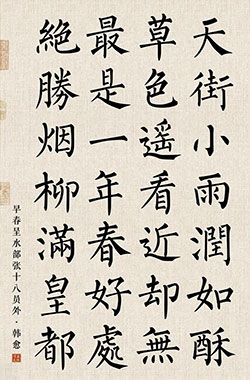 天街小雨潤如酥
草色遥看近却無
最是一年春好處
絶勝烟柳滿皇都
早春呈水部张十八员外·韩愈